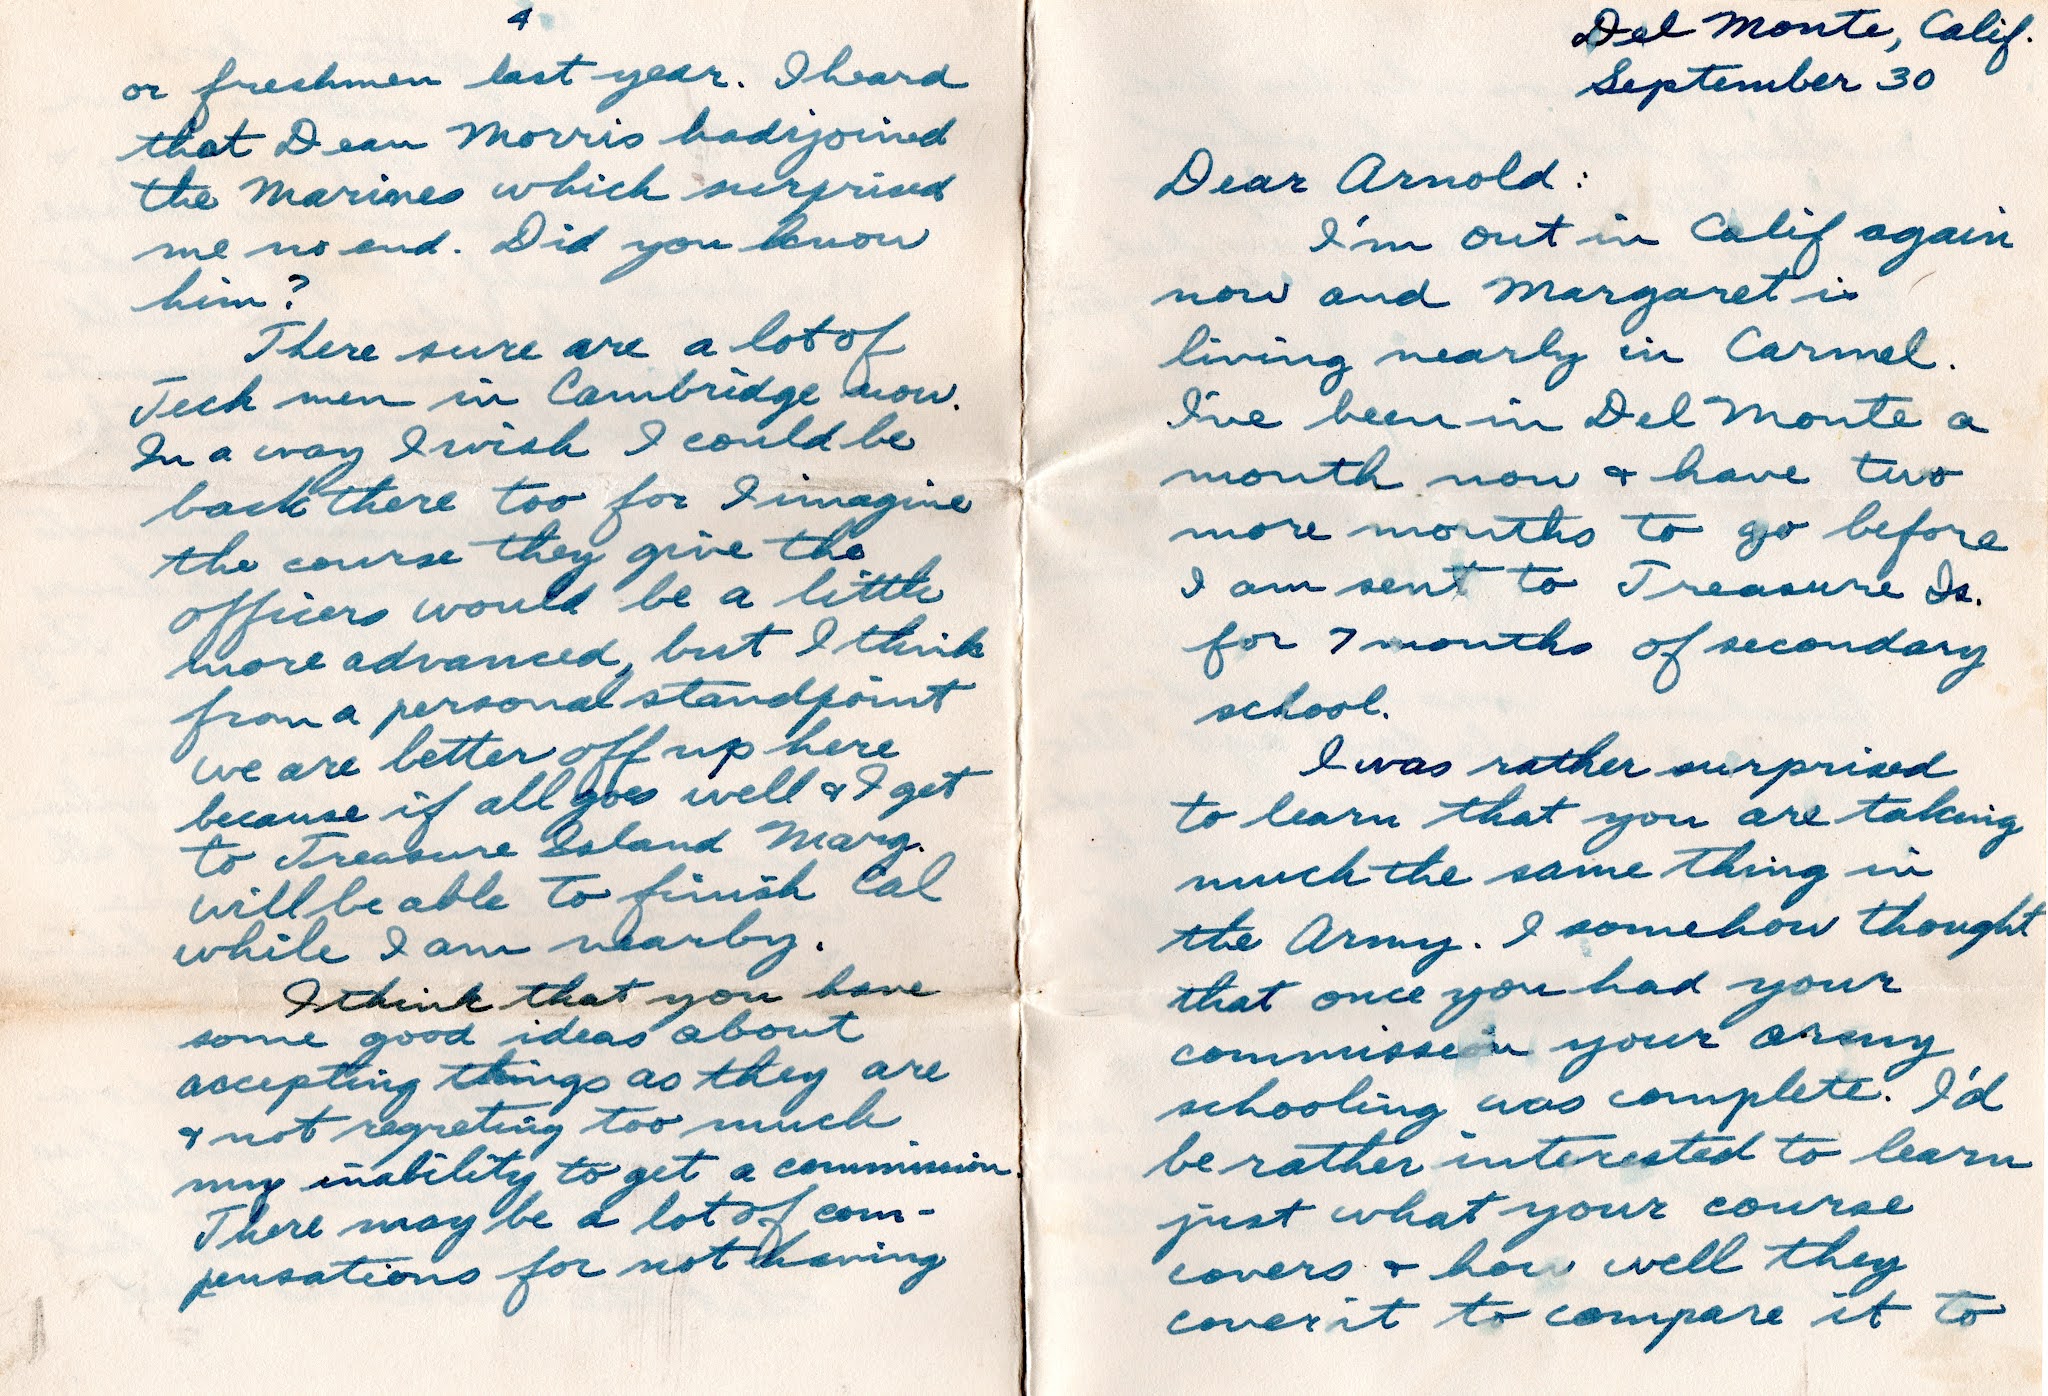 Del Monte, Calif.
September 30
Dear Arnold:
I'm out in Calif again
now and Margaret is
living nearby in Carmel.
I've been in Del Monte a
month now & have two
more months to go before
I am sent to Treasure Is.
for 7 months of secondary
school.
I was rather surprised
to learn that you are taking
much the same thing in
the Army. I somehow thought
that once you had your
commission your army
schooling was complete. I'd
be rather interested to learn
just what your course
covers & how well they
cover it to compare it to
4
or freshmen last year. I heard
that Dean Morris had joined
the Marines which surprised
me no end. Did you know
him?
There sure are a lot of
Tech men in Cambridge now.
In a way I wish I could be
back there too for I imagine
the course they give the
officers would be a little
more advanced, but I think
from a personal standpoint
we are better off up here
because if all goes well & I get
to Treasure Island Marg.
will be able to finish Cal
while I am nearby.
I think that you have
some good ideas about
accepting things as they are
& not regreting too much
my inability to get a commission.
There may be a lot of com-
pensations for not having